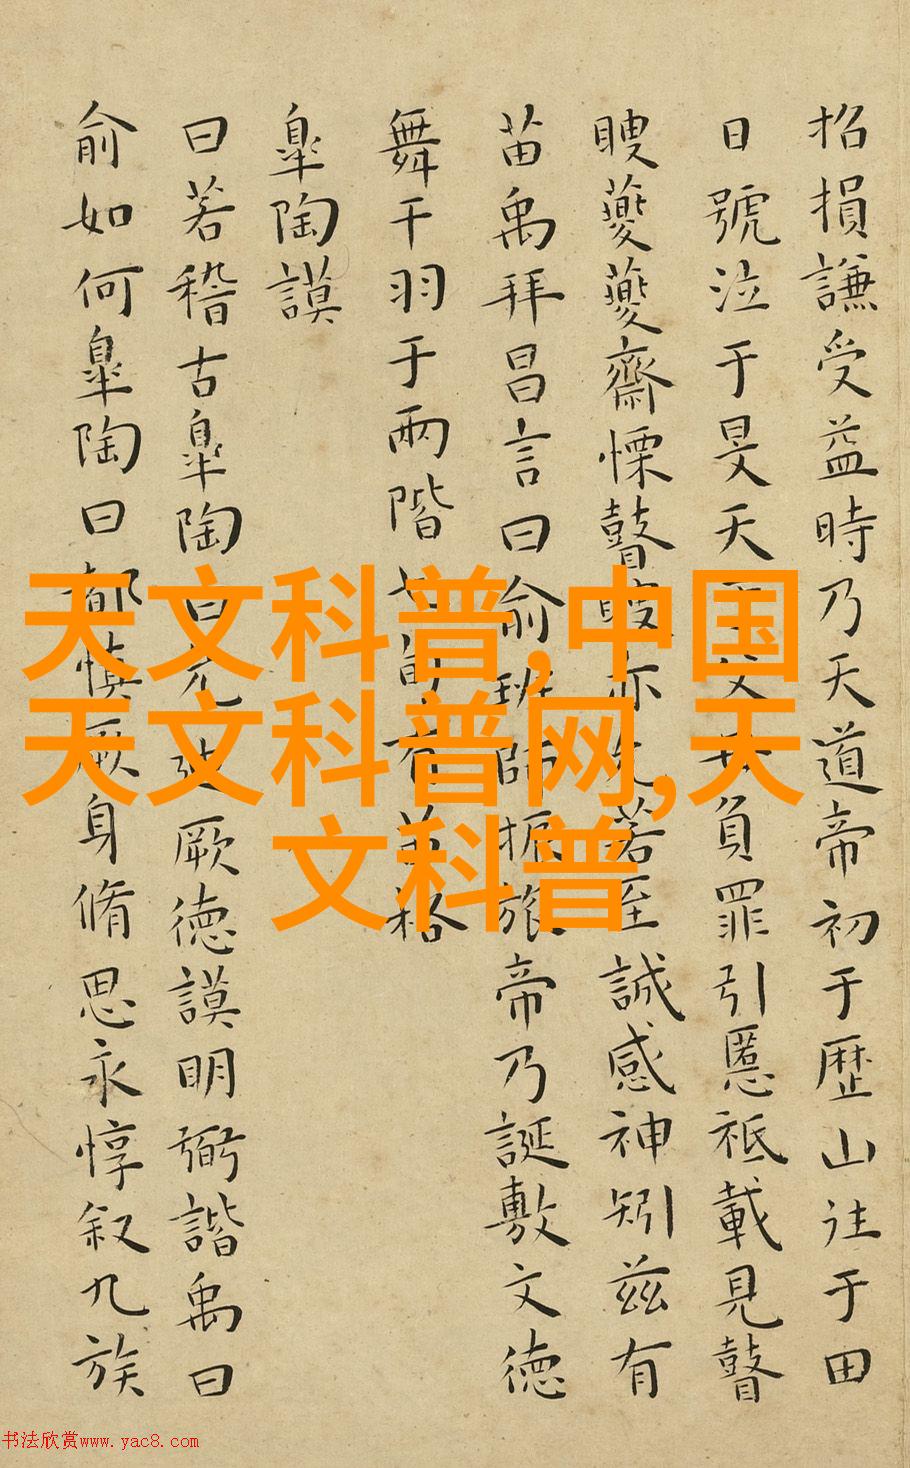 招損謙受益時乃天道帝初于歴山往于田
日號泣于旻天于父母負罪引慝祗載見瞽
瞍夔夔齋慄瞽瞍亦允若至諴感神矧茲有
苗禹拜昌言曰俞班師振旅帝乃誕敷文德
舞干羽于兩階七旬有苗格
皐陶謨
曰若稽古皐陶曰允迪厥德謨明弼諧禹曰
俞如何皐陶曰都慎厥身脩思永惇叙九族
天文科普,中国
天文科普网,天
文科普
书法欣赏www.yac8.com